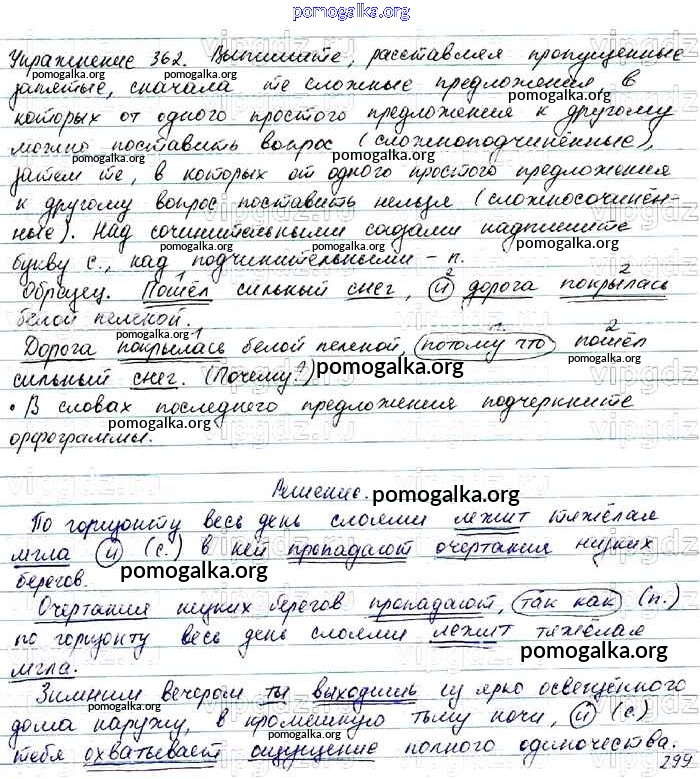 pomogalka.org
Упражнение 362. Выпишите, расставляя пропущенные
запятые, сначала те сложные предложения в
которых от одного простого предложения к другому
можно поставить вопрос (сложноподчинённые),
затем те, в которых от одного простого предложения
к другому вопрос поставить нельзя (сложносочинён-
ные). Над сочинительными союзами надпишите
букву с., над подчинительными - п.
Образец. Пошёл сильный снег, и дорога покрылась
белой пеленой.
Дорога покрылась белой пеленой, потому что пошёл
сильный снег. (Почему?)
• В словах последнего предложения подчеркните
орфограммы.
Решение. pomogalka.org
По горизонту весь день слоями лежит тяжёлая
мгла и (с.) в ней пропадают очертания низких
берегов. pomogalka.org
Очертания низких берегов пропадают, так как (п.)
по горизонту весь день слоями лежит тяжёлая
мгла.
Зимним вечером ты выходишь из ярко освещённого
дома наружу, в кромешную тьму ночи, и (с.)
тебя охватывает ощущение полного одиночества.
299